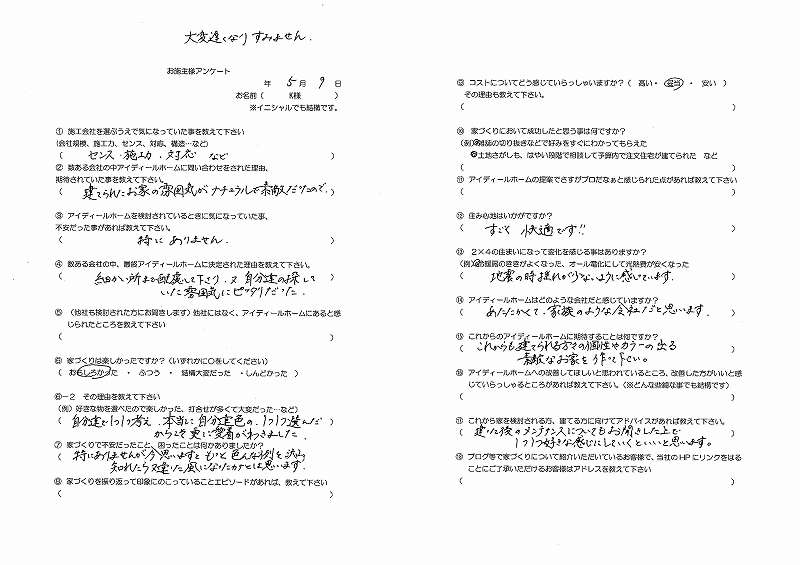 大変遅くなりすみません.
お施主様アンケート
年 5月 9日
お名前 ( K様 )
※イニシャルでも結構です。
① 施工会社を選ぶうえで気になっていた事を教えて下さい
(会社規模、施工力、センス、対応、構造…など)
( センス・施工力・対応 など )
② 数ある会社の中アイディールホームに問い合わせをされた理由、
期待されていた事を教えて下さい。
( 建てられたお家の雰囲気がナチュラルで素敵だったので. )
③ アイディールホームを検討されているときに気になっていた事、
不安だった事があれば教えて下さい。
( 特に ありません. )
④ 数ある会社の中、最終アイディールホームに決定された理由を教えて下さい。
( 細かい所まで配慮して下さり、又 自分達の探して
いた雰囲気にピッタリだった. )
⑤ (他社も検討された方にお聞きします) 他社にはなく、アイディールホームにあると感
じられたところを教えて下さい
( )
⑥ 家づくりは楽しかったですか? (いずれかに○をしてください)
( おもしろかった ・ ふつう ・ 結構大変だった ・しんどかった )
⑥-2 その理由を教えて下さい
(例) 好きな物を選べたので楽しかった、打合せが多くて大変だった…など)
( 自分達で1つ1つ考え、本当に自分達色の1つ1つ選んだ
からこそ更に愛着がわきました )
⑦ 家づくりで不安だったこと、困ったことは何かありましたか?
( 特にありませんが今思いますと もっと色んな例を
知れたら又違った風になったかとは思います. )
⑧ 家づくりを振り返って印象にのこっていることエピソードがあれば、教えて下さい
( )
⑨ コストについてどう感じていらっしゃいますか? ( 高い・ 妥当 ・ 安い )
その理由も教えて下さい。
( )
⑩ 家づくりにおいて成功したと思う事は何ですか?
(例)雑誌の切り抜きなどで好みをすぐにわかってもらえた
土地さがしも、はやい段階で相談して予算内で注文住宅が建てられた など
( )
⑪ アイディールホームの提案でさすがプロだなぁと感じられた点があれば教えて下さい
( )
⑫ 住み心地はいかがですか?
( すごく 快適です!! )
⑬ 2×4の住まいになって変化を感じる事はありますか?
(例)お部屋のききがよくなった、オール電化にして光熱費が安くなった
( 地震の時揺れが少ないように感じています. )
⑭ アイディールホームはどのような会社だと感じていますか?
( あたたかくて、家族のような会社だと思います. )
⑮ これからのアイディールホームに期待することは何ですか?
( これからも建てられる方々の個性やカラーの出る
素敵なお家を作って下さい。 )
⑯ アイディールホームへの改善してほしいと思われているところ、改善した方がいいと感
じていらっしゃるところがあれば教えて下さい。(※どんな些細な事でも結構です)
( )
⑰ これから家を検討される方、建てる方に向けてアドバイスがあれば教えて下さい。
( 建った後のメンテナンスについてもお聞きした上で
1つ1つ好きな感じにしていくといいと思います。 )
⑱ ブログ等で家づくりについて紹介いただいているお客様で、当社のHPにリンクをはる
ことにご了承いただけるお客様はアドレスを教えて下さい
( )